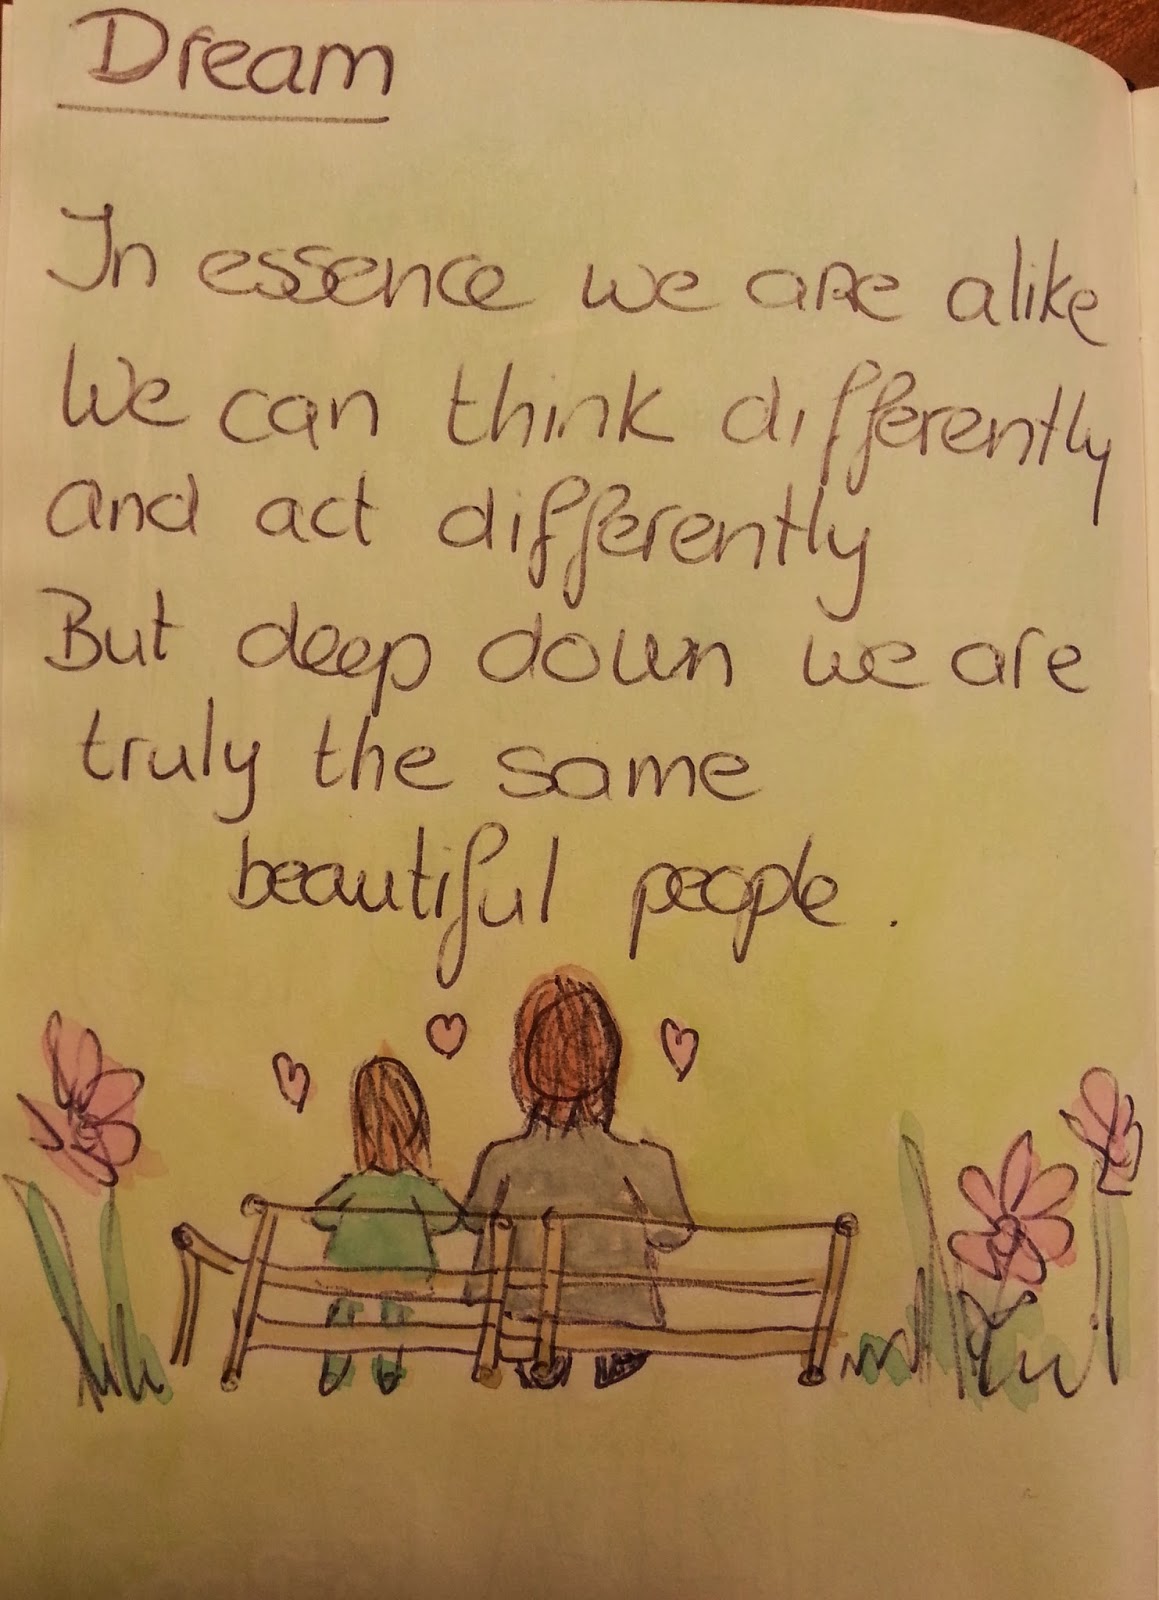 Dream
In essence we are alike
We can think differently
and act differently
But deep down we are
truly the same
beautiful people.